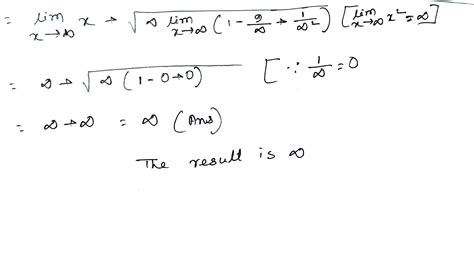 = lim x→∞ x + √(∞ lim x→∞ (1 - 2/∞ + 1/∞²)) [lim x→∞ x² = ∞]
= ∞ + √(∞ (1 - 0 + 0)) [∵ 1/∞ = 0
= ∞ + ∞ = ∞ (Ans)
The result is ∞